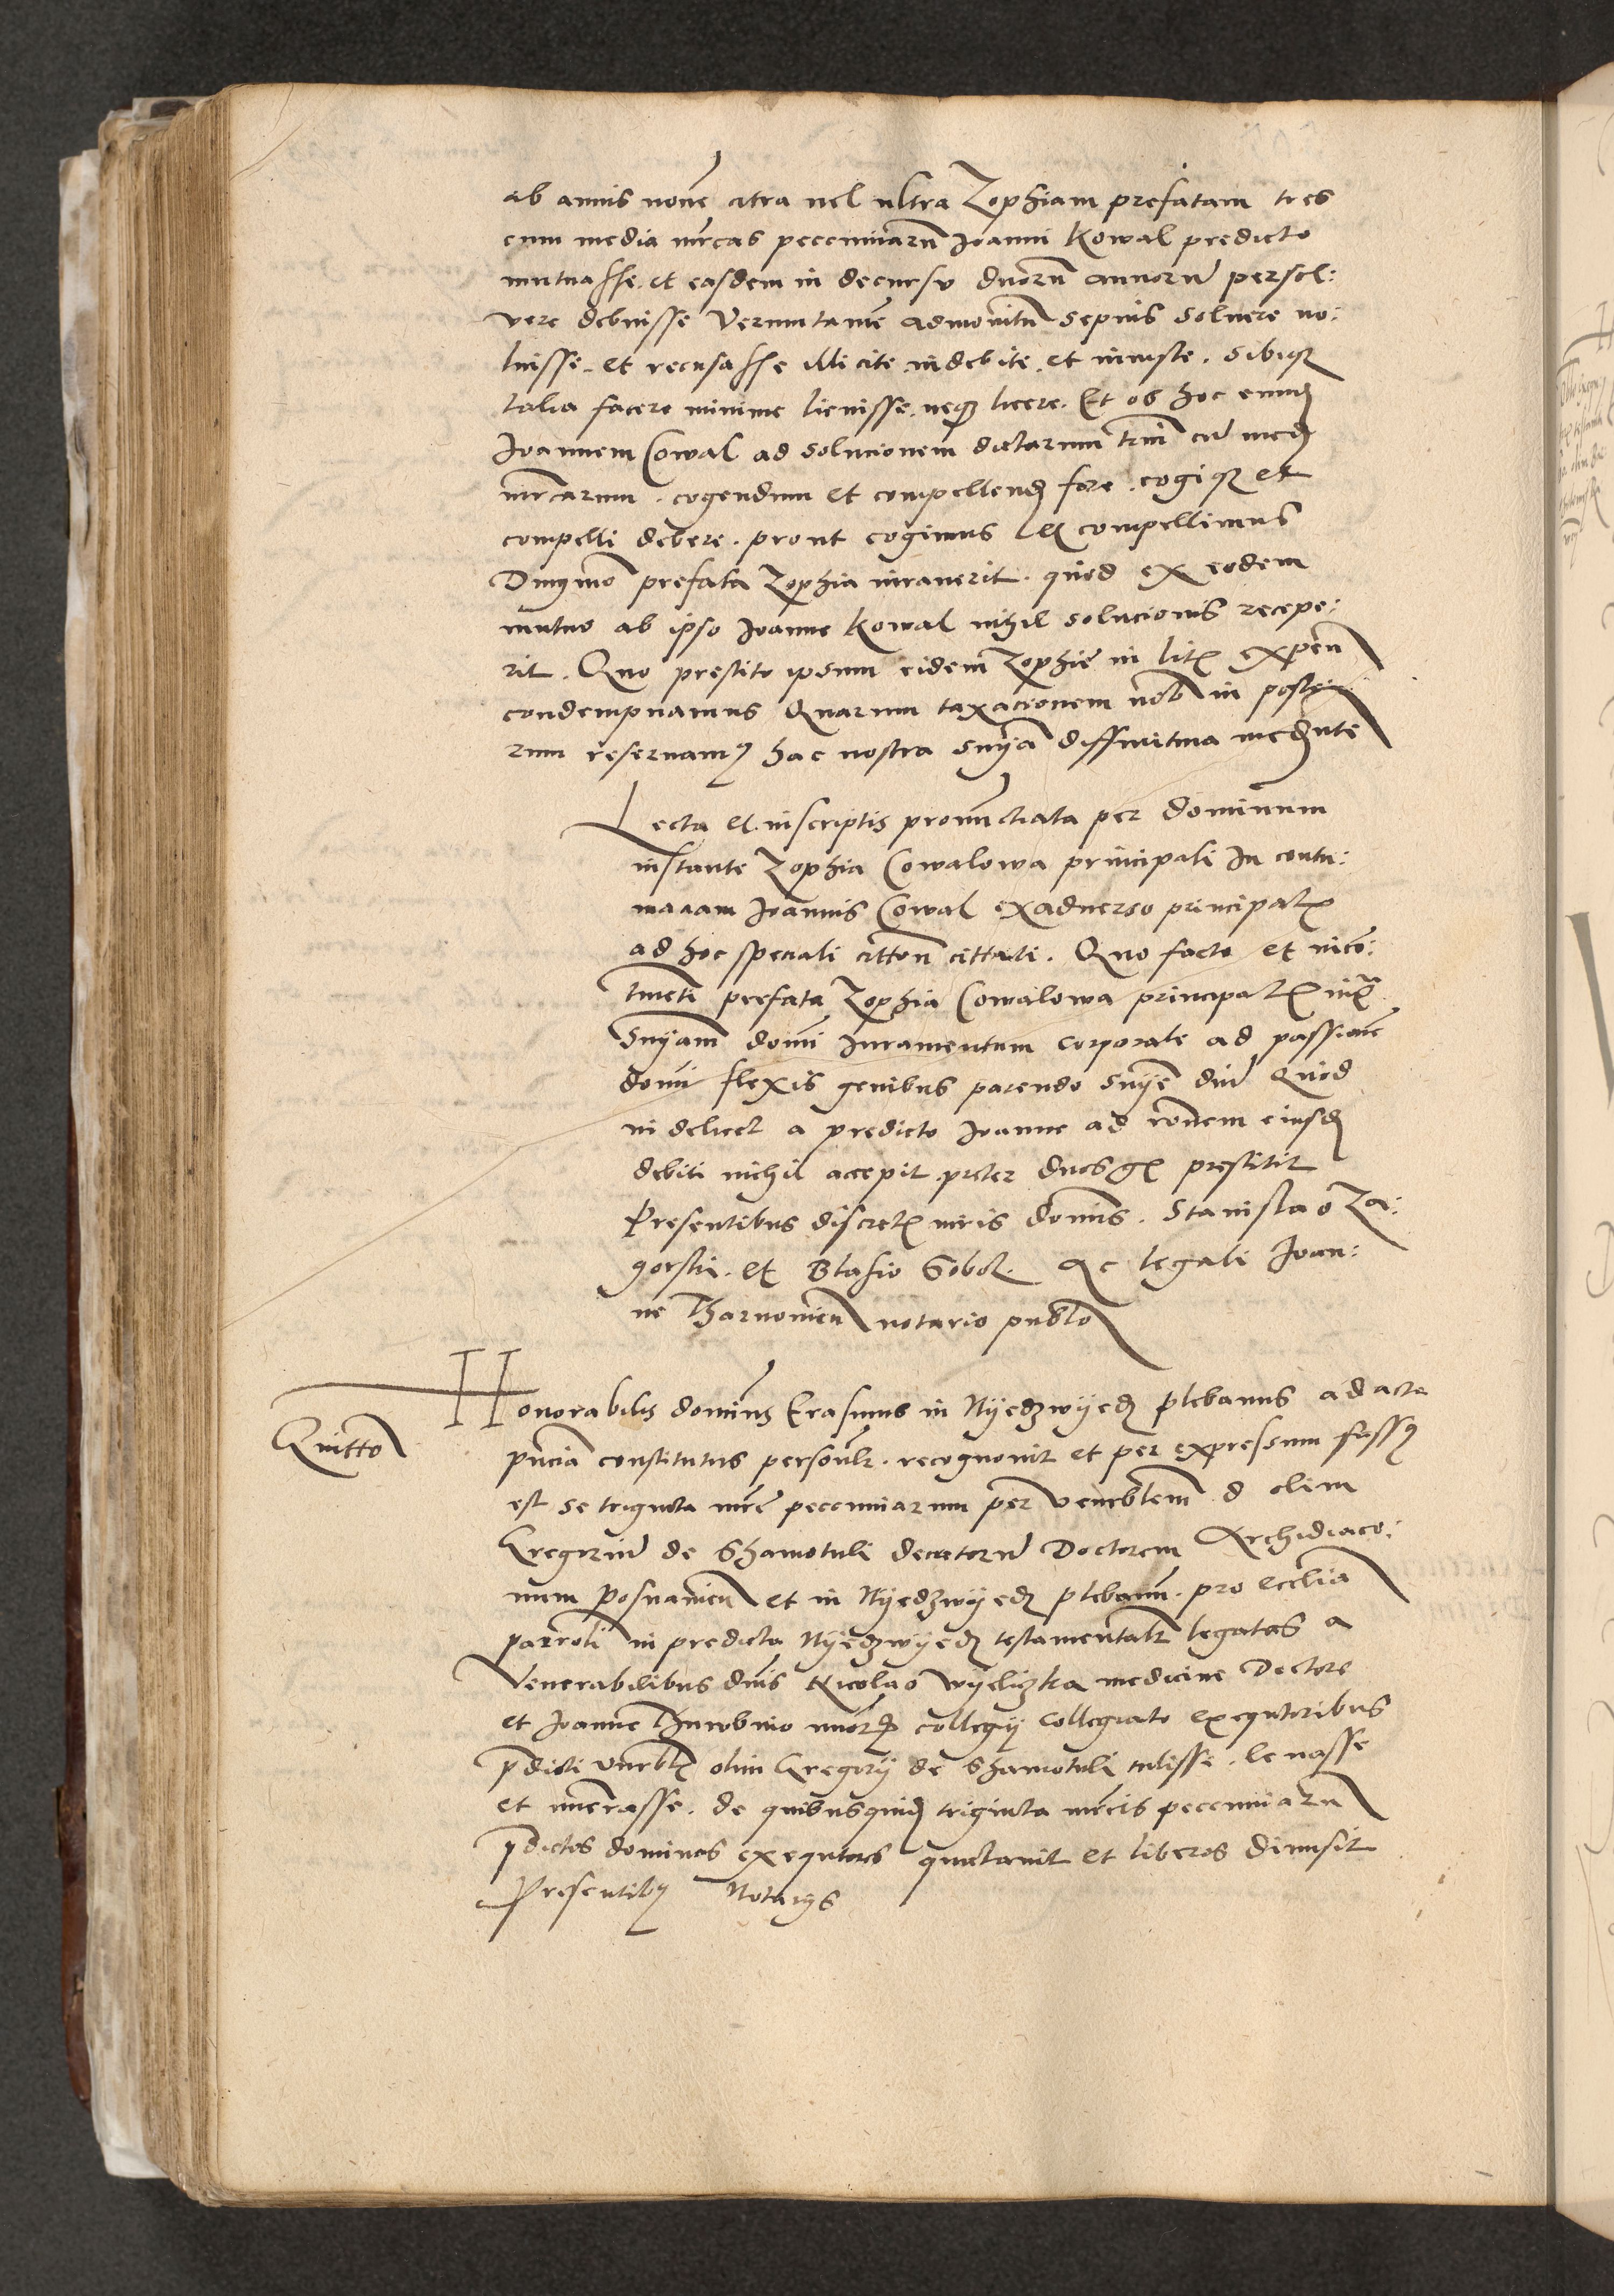 ab annis novem citra vel ultra Zophiam prefatam tres
cum media mrcas pecuniarũ Joanni Kowal predicto
mutuasse. et easdem in decursu duorũ annorũ persol:
vere debuisse Veruntamẽ admonitũ sepius solvere no:
luisse. et recusasse illicite indebite. et iniuste. sibiqꝫ
talia facere minime licuisse. neqꝫ licere. Et ob hoc eund
Joannem Cowal ad solucionem dictarum triũ cũ med
mrcarum. cogendum et compellend fore. cogiqꝫ et
compelli debere. prout cogimus et compellimus
Dũmõ prefata Zophia iuraverit. quod ex eodem
mutuo ab ipso Joanne Kowal nihil solucionis recepe:
rit. Quo prestito ipsum eidem Zophie in lit expen
condempnamus Quarum taxacionem nob in poste
rum reservamꝰ hac nostra snia diffinitiva mednte
Lecta et inscriptis pronunctiata per dominum
instante Zophia Cowalowa principali In contu:
maciam Joannis Cowal exadverso principal
ad hoc speciali citton cittati. Quo facto et inco:
tineti prefata Zophia Cowalowa principal iux
Sniam domi Juramentum corporale ad passione
domi flexis genibus parendo snie dni Quod
videlicet a predicto Joanne ad ronem eiusd
debiti nichil accepit preter duos gr prestitit
Presentibus discret viris domis. Stanislao Za:
gorski. et Blasio Sobol. Ac legali Joan:
ne Tharnovien notario publo
Quitto
Honorabilis dominus Erasmus in Nyedzwyedz plebanus ad acta
pncia constitutus personlr. recognovit et per expressum fassꝰ
est se triginta mrc pecunniarum per venerbilem d olim
Gregorium de Shamotuli decretorũ Doctorem Archidiaco:
num Posnanien et in Nyedzwyedz plebanũ. pro ecclia
parroli in predicta Nyedzwyedz testamentalr legatas a
Venerabilibus dnis Nicolao Wyeliczka medicine Doctore
et Joanne Thurobino minor collegii collegiato exequtoribus
pdicti venrbl olim Gregorii de Shamotuli tulisse. levasse
et numerasse. de quibusquid triginta mrcis pecunniarũ
pdictos dominos exequtores quictavit et liberos dimisit
Presentibꝰ Notariis